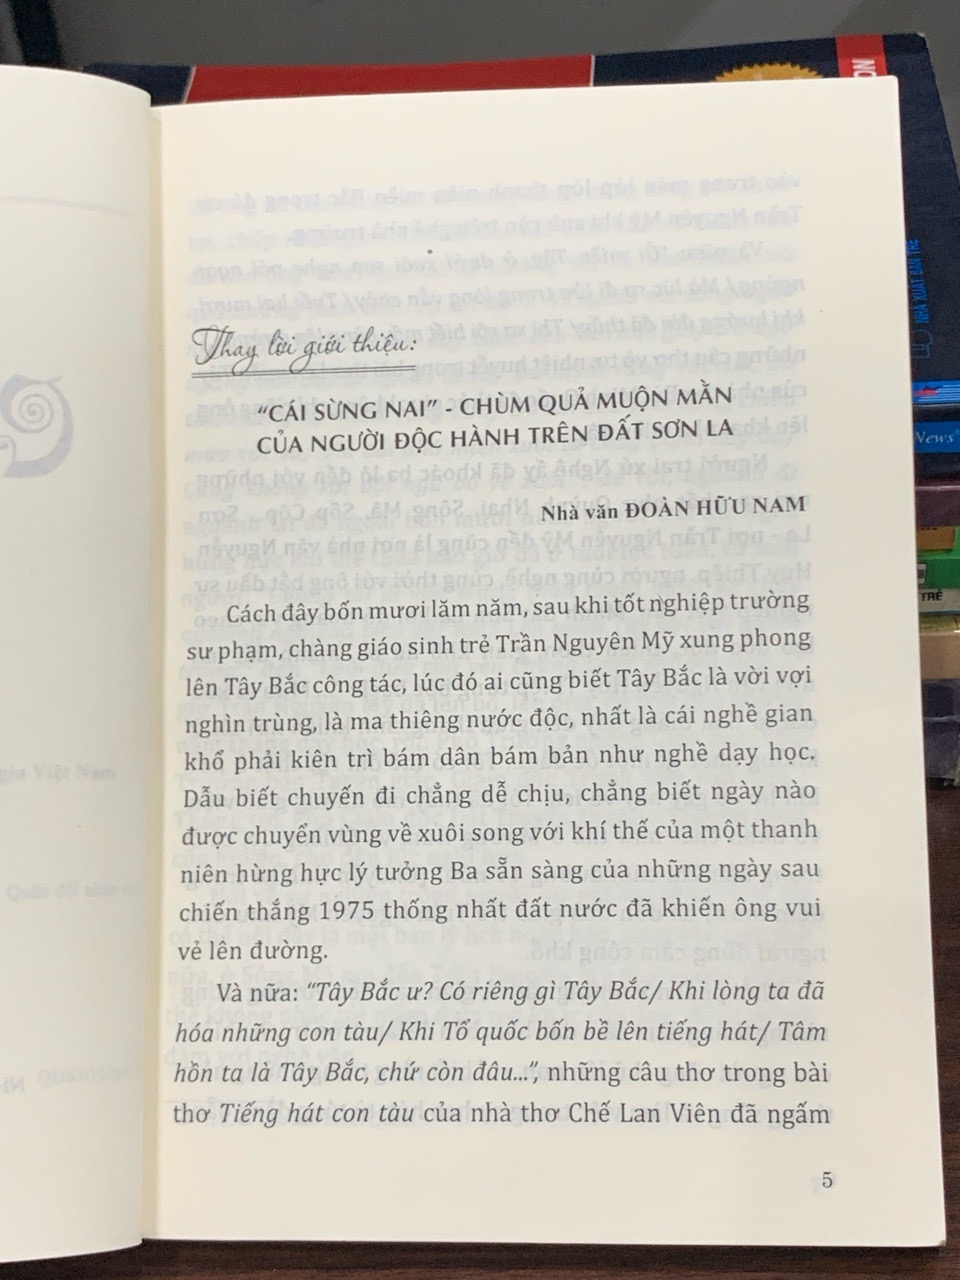 Thay lời giới thiệu:
“CÁI SỪNG NAI” - CHÙM QUẢ MUỘN MẰN
CỦA NGƯỜI ĐỘC HÀNH TRÊN ĐẤT SƠN LA
Nhà văn ĐOÀN HỮU NAM
Cách đây bốn mươi lăm năm, sau khi tốt nghiệp trường
sư phạm, chàng giáo sinh trẻ Trần Nguyên Mỹ xung phong
lên Tây Bắc công tác, lúc đó ai cũng biết Tây Bắc là vời vợi
nghìn trùng, là ma thiêng nước độc, nhất là cái nghề gian
khổ phải kiên trì bám dân bám bản như nghề dạy học.
Dẫu biết chuyến đi chẳng dễ chịu, chẳng biết ngày nào
được chuyển vùng về xuôi song với khí thế của một thanh
niên hừng hực lý tưởng Ba sẵn sàng của những ngày sau
chiến thắng 1975 thống nhất đất nước đã khiến ông vui
vẻ lên đường.
Và nữa: “Tây Bắc ư? Có riêng gì Tây Bắc/ Khi lòng ta đã
hóa những con tàu/ Khi Tổ quốc bốn bề lên tiếng hát/ Tâm
hồn ta là Tây Bắc, chứ còn đâu...”, những câu thơ trong bài
thơ Tiếng hát con tàu của nhà thơ Chế Lan Viên đã ngấm
5
NHÀ XUẤT BẢN TRẺ
News
TRẺ